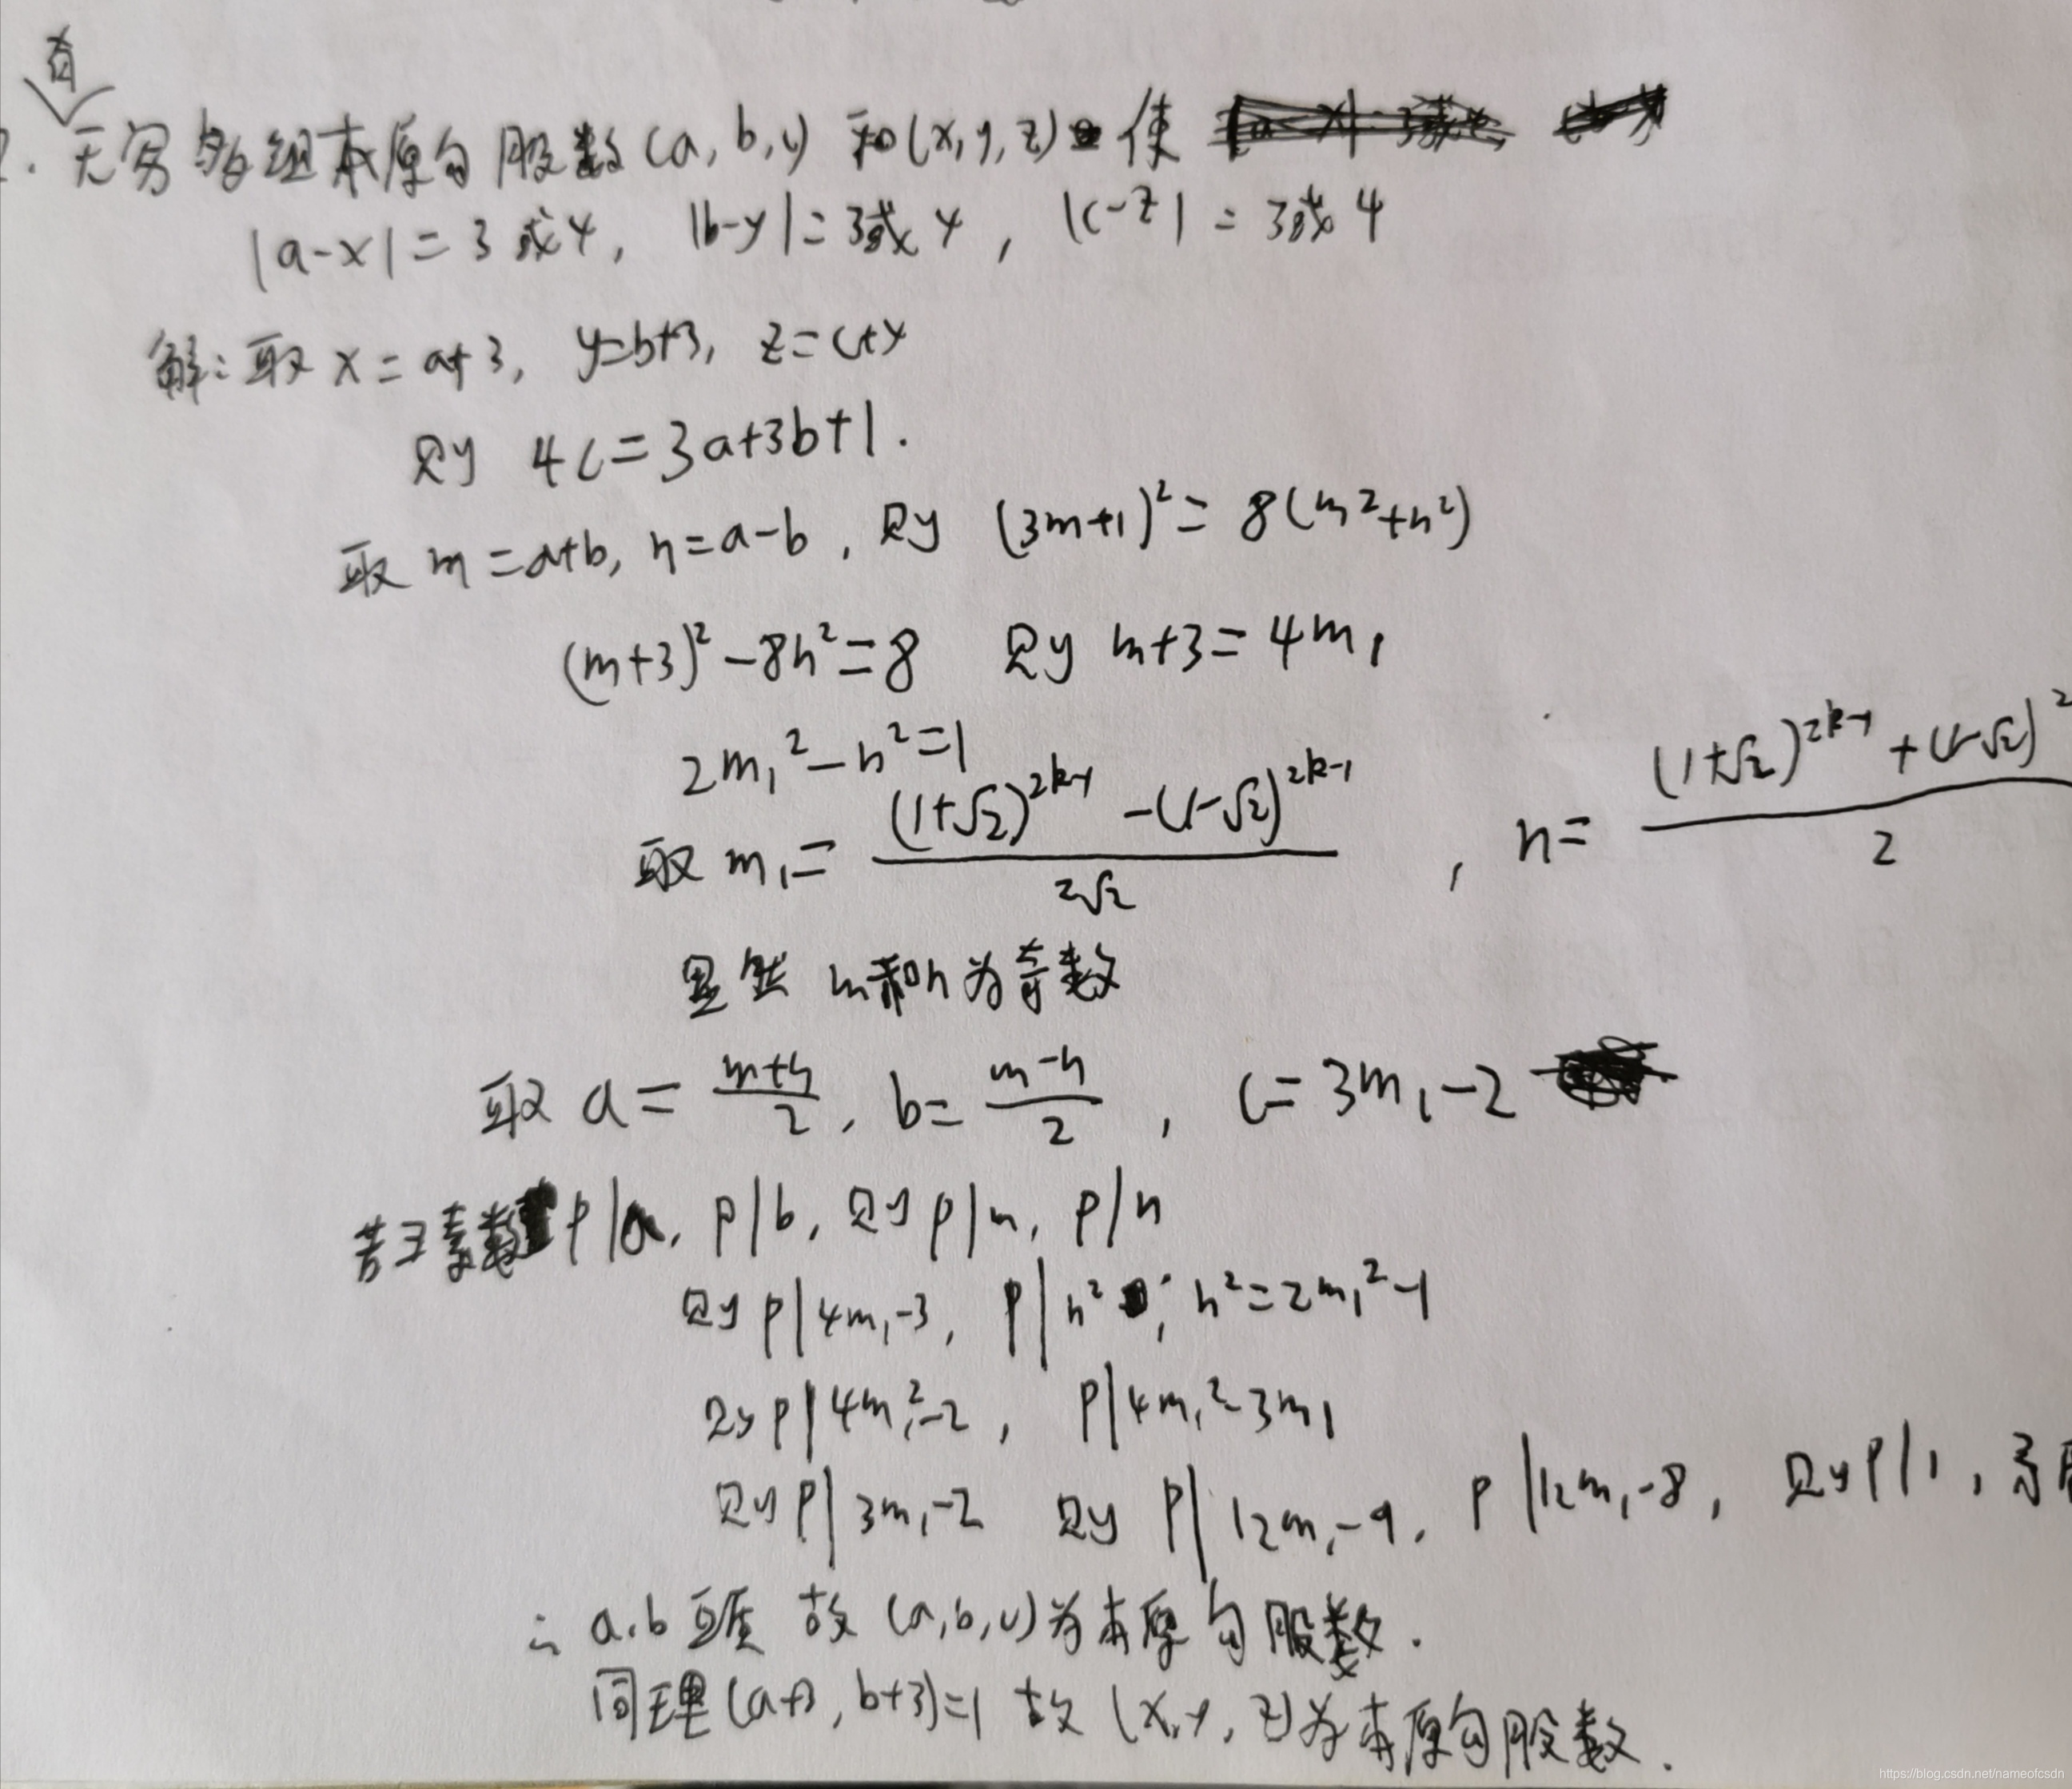 有
无穷多组本原勾股数(a,b,c)和(x,y,z)使
|a-x|=3或4, |b-y|=3或4, |c-z|=3或4
解:取x=a+3, y=b+3, z=c+4
则 4c=3a+3b+1.
取m=a+b, n=a-b, 则 (3m+1)²=8(m²+n²)
(m+3)²-8n²=8 则 m+3=4m₁
2m₁²-n²=1
取m₁=((1+√2)^(2k-1)-(1-√2)^(2k-1))/(2√2), n=((1+√2)^(2k-1)+(1-√2)^2)/2
显然 m和n为奇数
取a=(m+n)/2, b=(m-n)/2, c=3m₁-2
若素数p|a, p|b, 则p|m, p|n
则p|4m₁-3, p|n², n²=2m₁²-1
则p|4m₁²-2, p|4m₁²-3m₁
则p|3m₁-2 则 p|12m₁-9, p|12m₁-8, 则p|1,
∴ a,b互质 故(a,b,c)为本原勾股数.
同理(a+3, b+3)=1 故(x,y,z)为本原勾股数.
https://blog.csdn.net/nameofcsdn